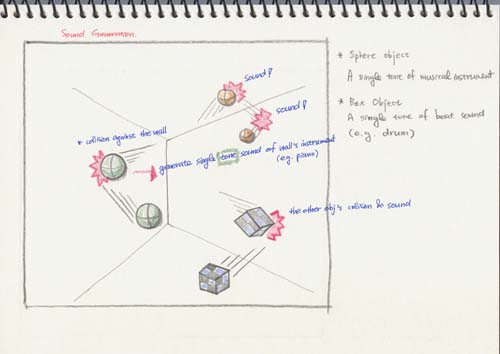 Sound Generation.
sound!
sound!
* collision against the wall
generate single tone sound of wall's instrument
(e.g. piano)
the other obj's collision & sound
* Sphere object
A single tone of musical instrument
* Box Object
A single tone of beat sound
(e.g. drum)